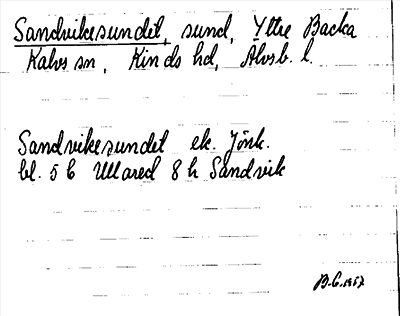 Sandvikesundet, sund, Yttre Backa
Kalvs sn, Kinds hd, Älvsb. l.
Sandvikesundet ek. Jönk.
bl. 5 b Ullared 8 h Sandvik
B.G. 1957